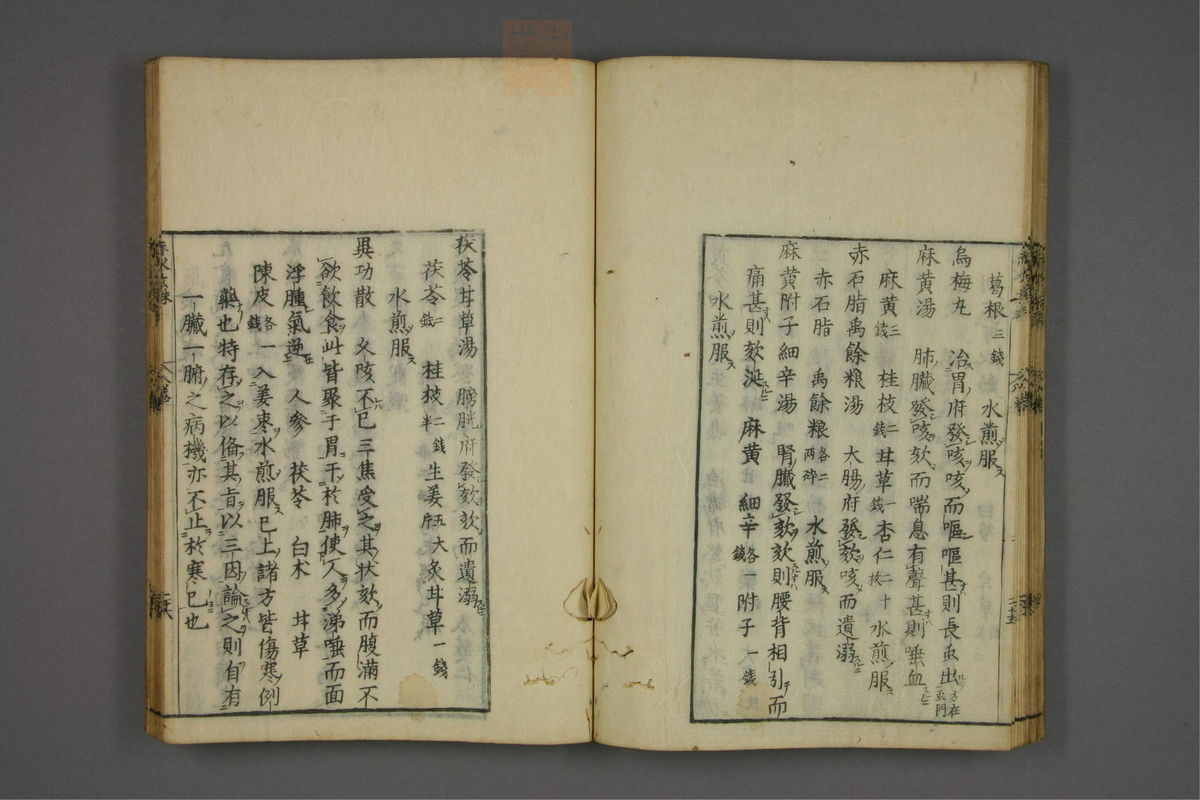 葛根三錢 水煎服ス
烏梅丸 治胃府發咳咳而嘔嘔甚則長虫出方在虫門
麻黃湯 肺臟發咳欬而喘息有聲甚則唾血
麻黃三錢 桂枝二錢 甘草一錢 杏仁二十枚 水煎服ス
赤石脂禹餘粮湯 大腸府發欬咳而遺溺
赤石脂 禹餘粮各二兩碎 水煎服ス
麻黃附子細辛湯 腎臟發欬欬則腰背相引而
痛甚則欬涎 麻黃 細辛各一錢 附子一錢
水煎服ス
茯苓甘草湯 膀胱府發欬欬而遺溺
茯苓二錢 桂枝二錢半 生姜五片大 炙甘草一錢
水煎服ス
異功散 久咳不已三焦受之其狀欬而腹滿不
欲飲食此皆聚于胃干於肺使人多涕唾而面
浮腫氣逆 人參 茯苓 白朮 甘草
陳皮各一錢 入姜棗水煎服已上諸方皆傷寒例
藥也特存之以俻其旨以三因論之則自有
一臟一腑之病機亦不止於寒已也